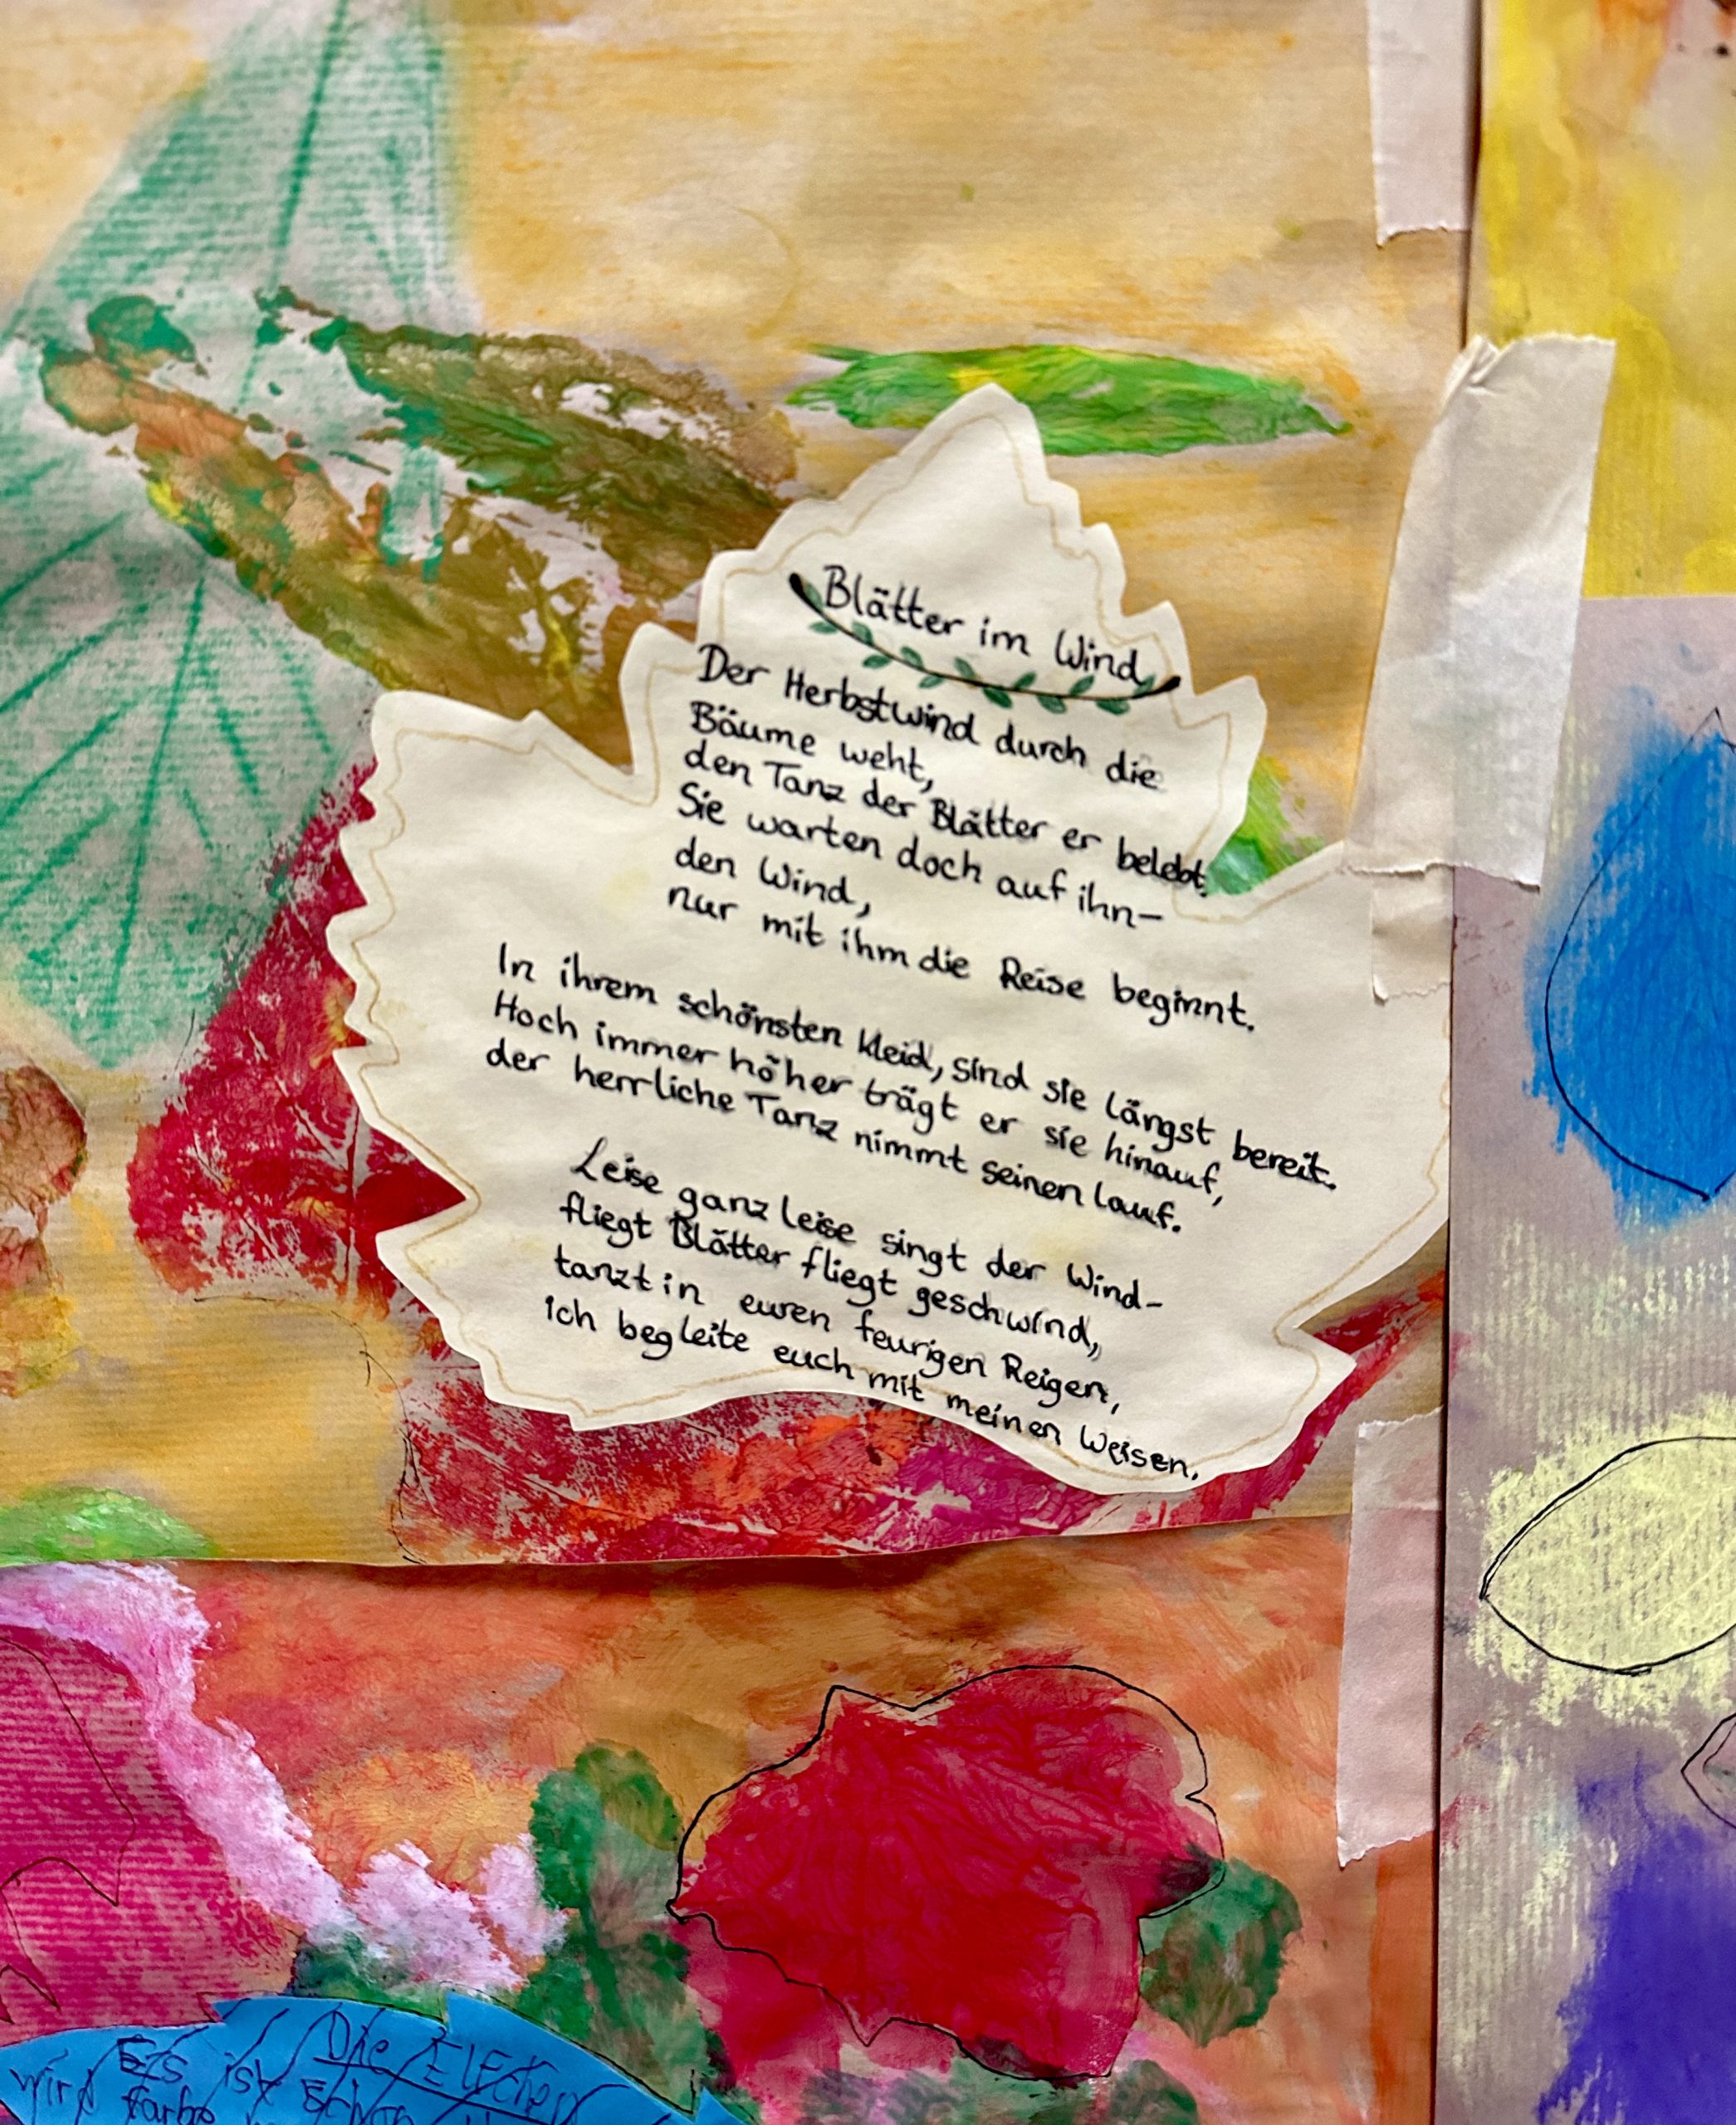 Blätter im Wind
Der Herbstwind durch die
Bäume weht,
den Tanz der Blätter er belebt.
Sie warten doch auf ihn-
den Wind,
nur mit ihm die Reise beginnt.
In ihrem schönsten Kleid, sind sie längst bereit.
Hoch immer höher trägt er sie hinauf,
der herrliche Tanz nimmt seinen lauf.
Leise ganz leise singt der Wind-
fliegt Blätter fliegt geschwind,
tanzt in euren feurigen Reigen,
ich begleite euch mit meinen Weisen.
Die Elfchen
Es ist schon
wird farbe